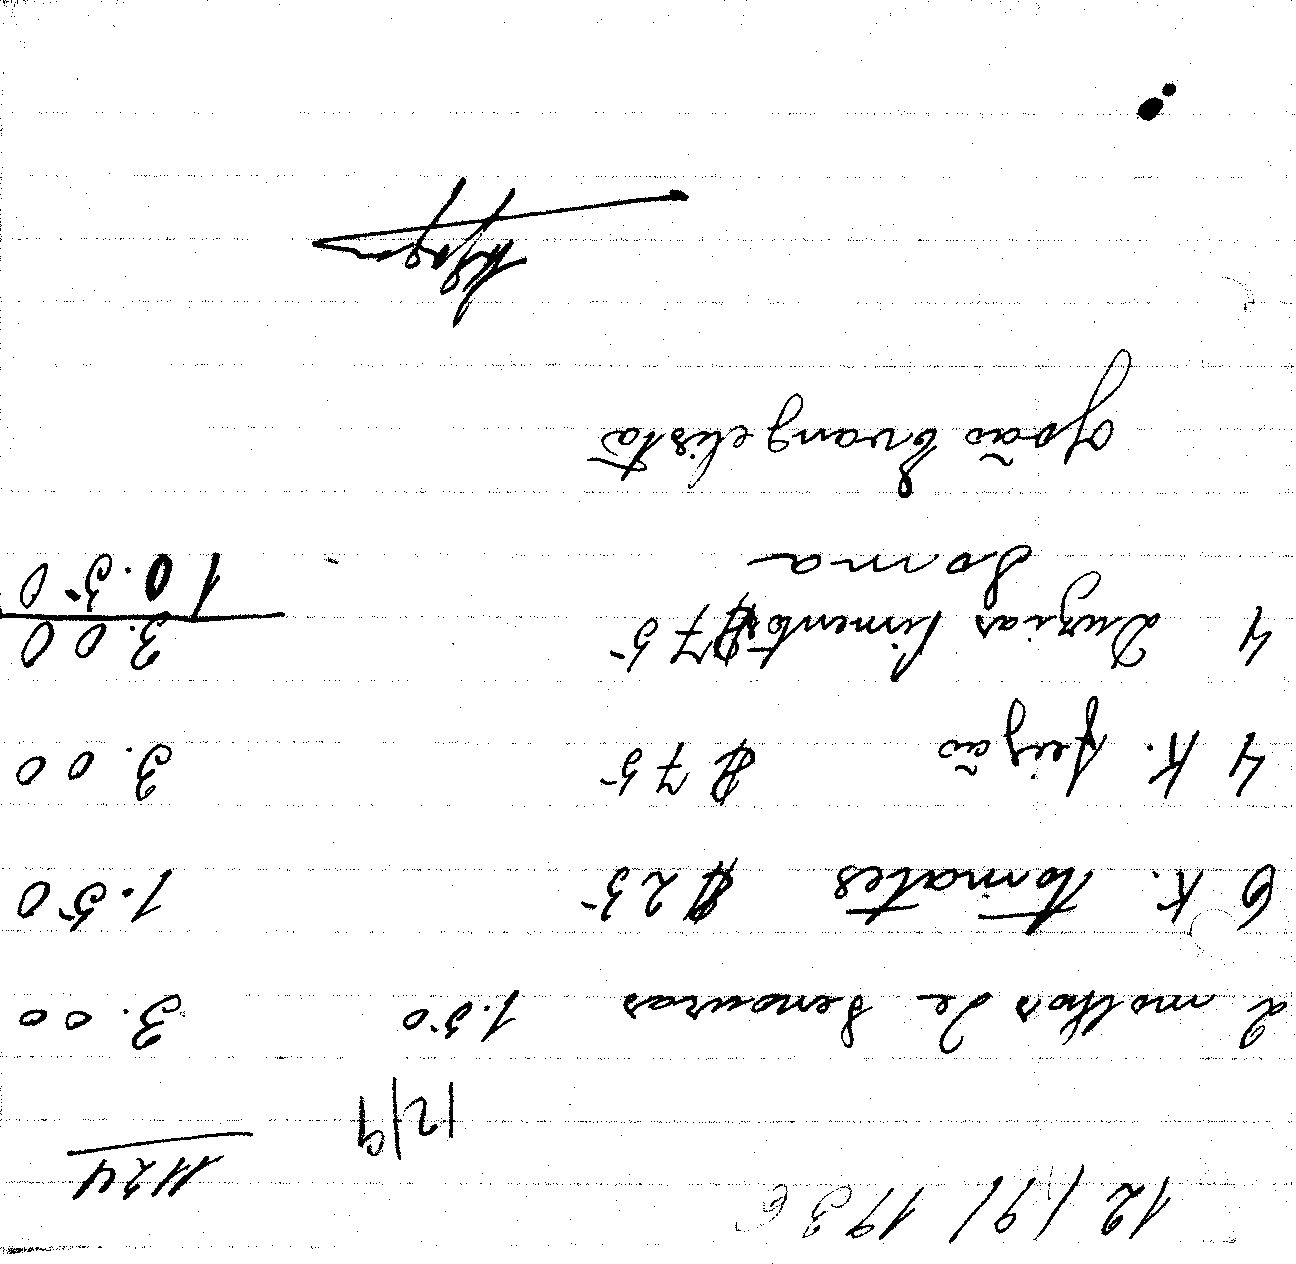 12 / 9 / 1936
1124
12/9
2 molhos de Senouras 1.50 3.00
6 K. tomates $25 1.50
4 K. feijão $75 3.00
4 Duzias Pimento $75 3.00
Soma 10.50
João Evangelista